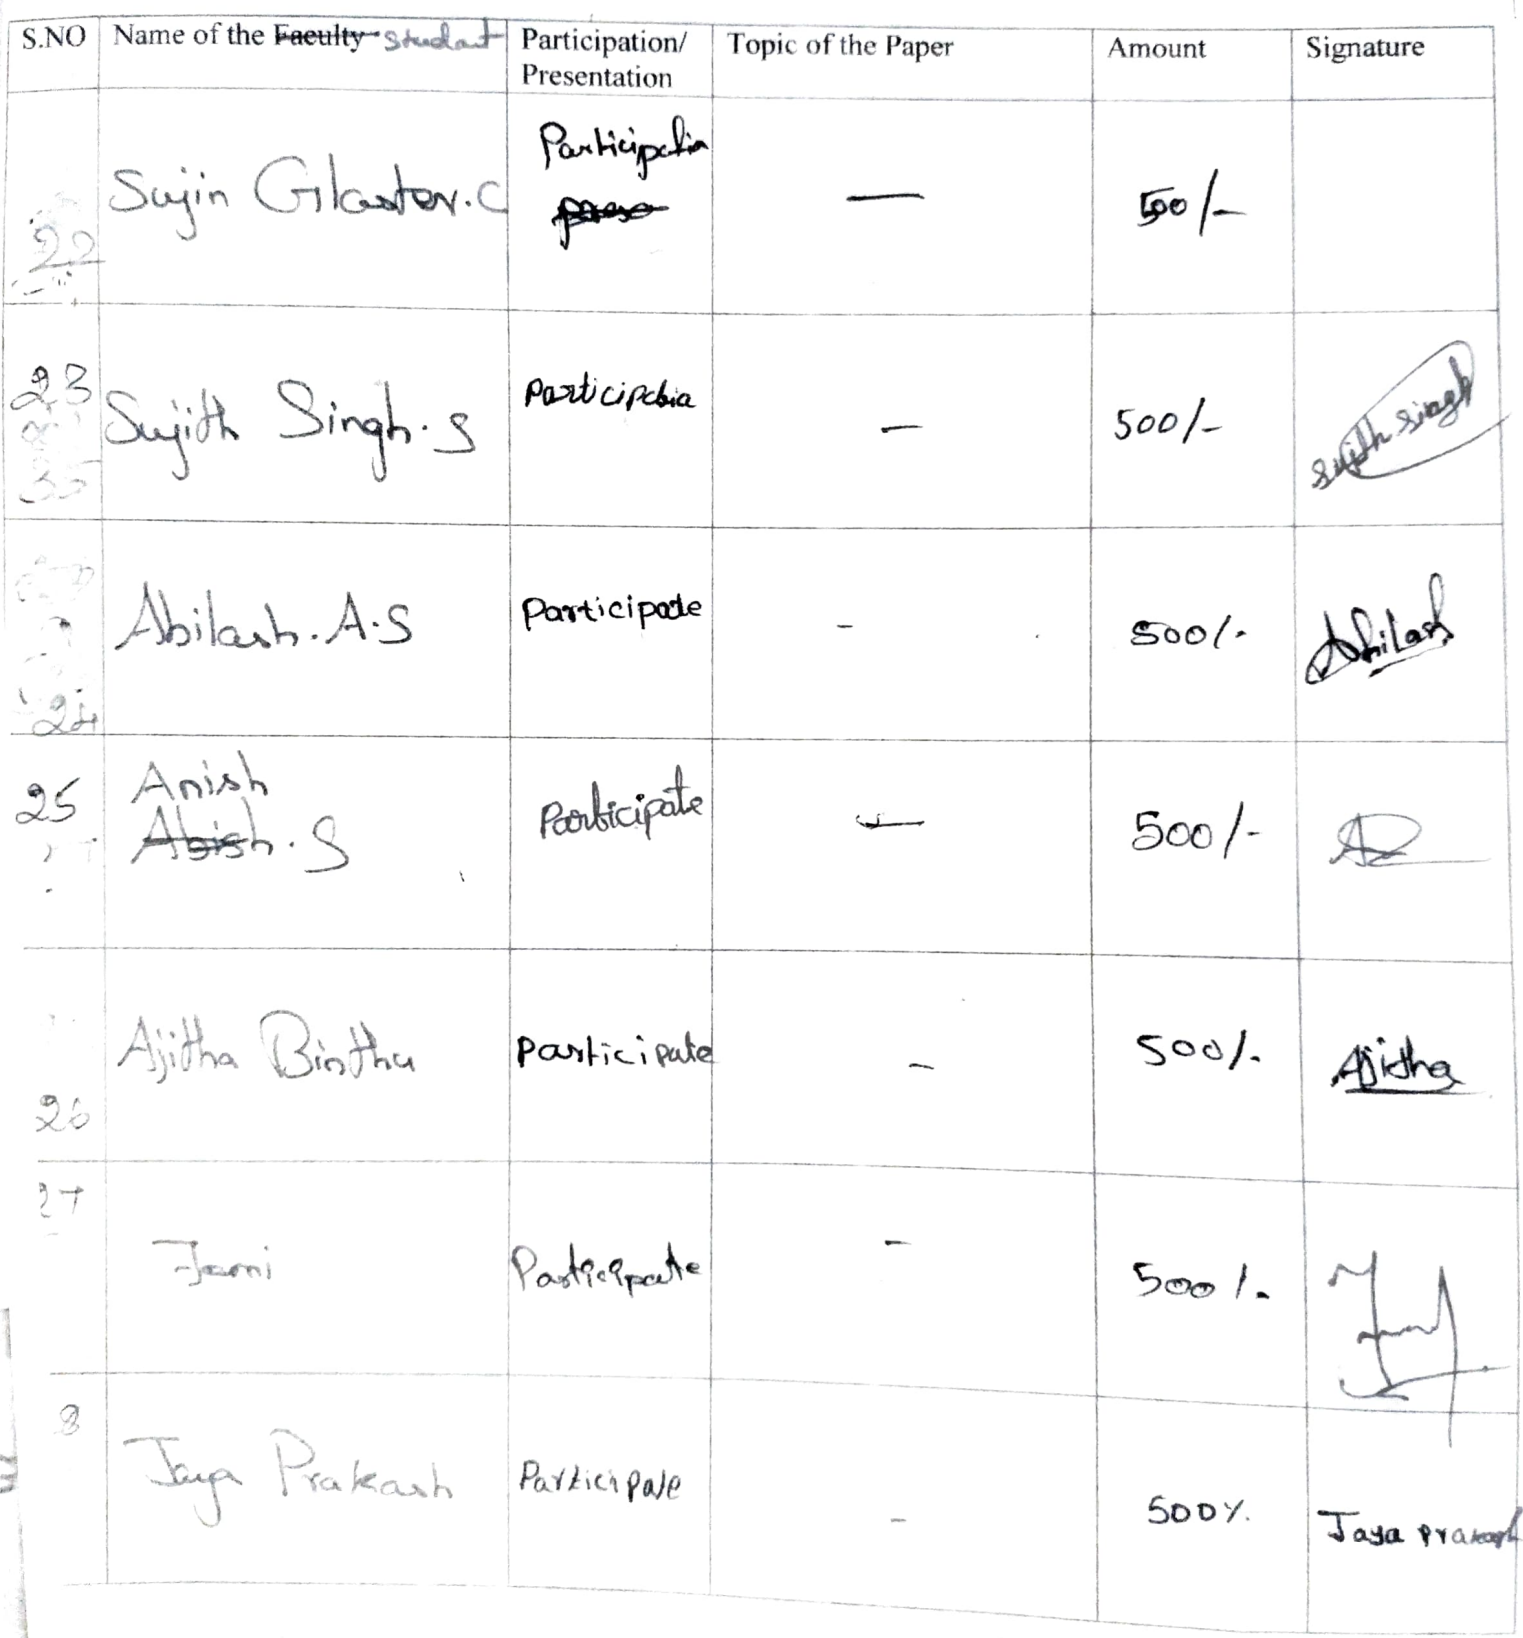 S.NO Name of the Faculty Student Participation/ Presentation Topic of the Paper Amount Signature
22 Sujin Glastor.C Participatin — 500/-
23 Sujith Singh.S Participatin — 500/- Sujith Singh
24 Abilash.A.S Participate - 500/- Abilash
25 Anish Abish.S Participate — 500/-
26 Ajitha Binthu Participate - 500/- Ajitha
27 Jarni Participate - 500/-
8 Jaya Prakash Participate - 500/- Jaya Prakash